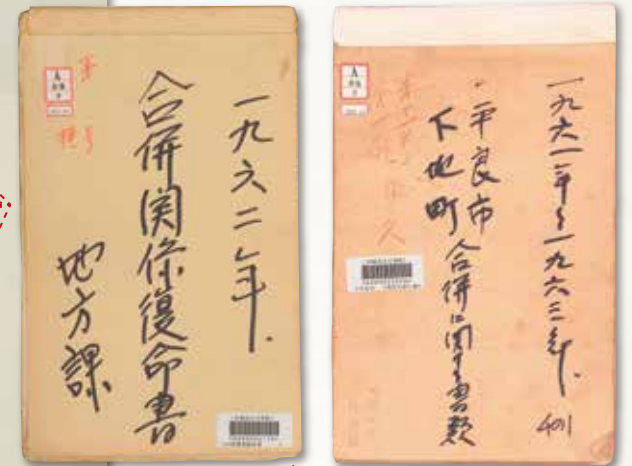 一九六二年.
合併関係復命書
地方課
A
一九六一年〜一九六三年.
平良市
下地町
合併に関する書類
401
A